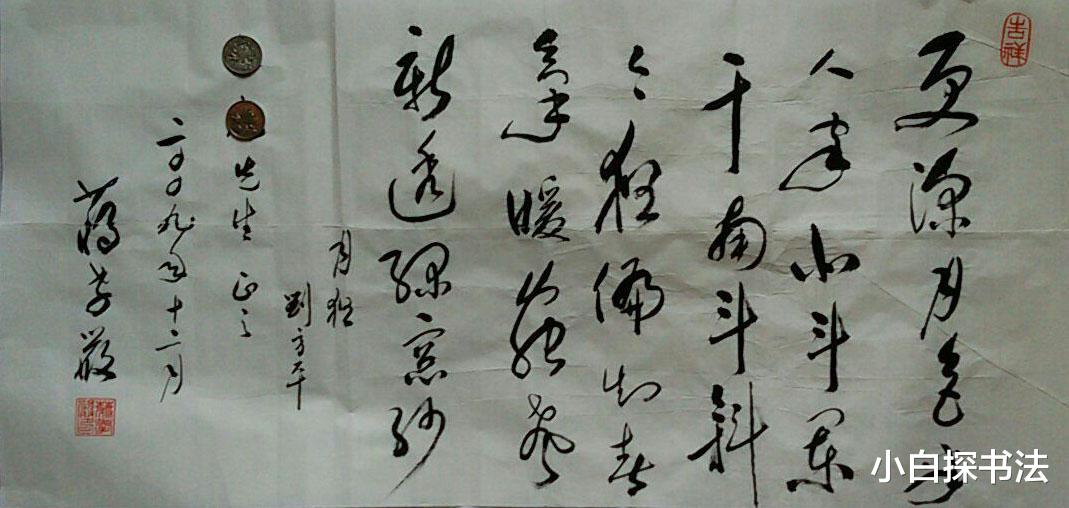 吉祥
更深月色半
人家北斗闌
干南斗斜
今夜偏知春
氣暖蟲聲
新透綠窓紗
月夜
劉方平
先生正之
二〇〇九年十二月
蔣孝嚴
小白探书法